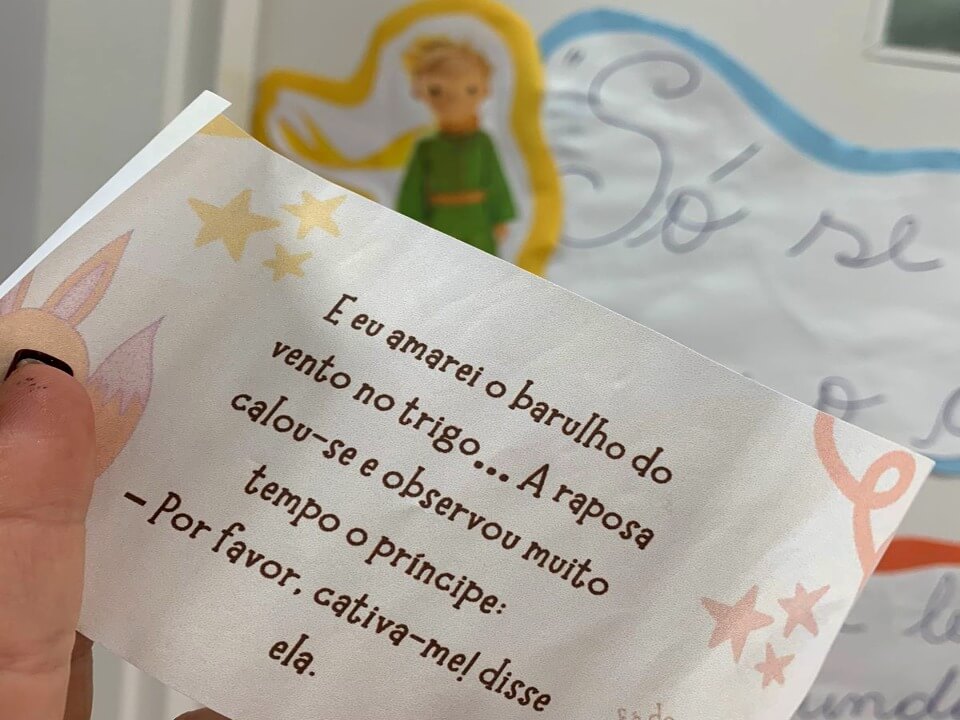 E eu amarei o barulho do
vento no trigo... A raposa
calou-se e observou muito
tempo o príncipe:
- Por favor, cativa-me! disse
ela.
Só se